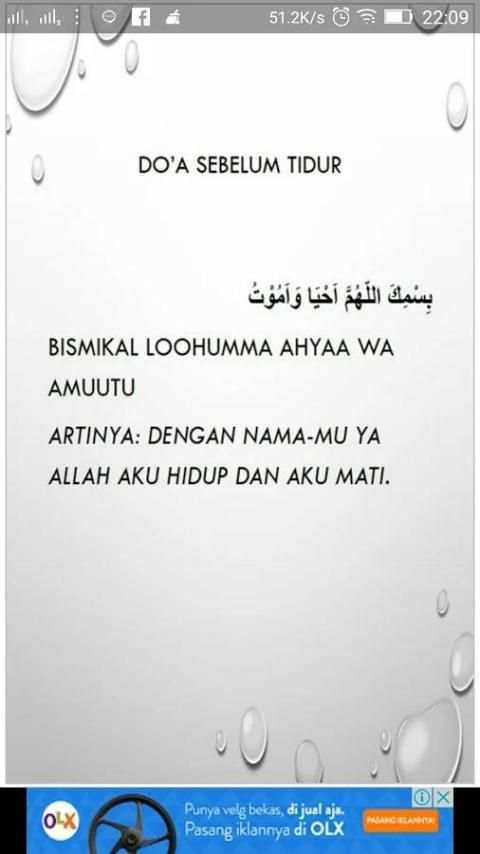 51.2K/s 22:09
DO'A SEBELUM TIDUR
بِسْمِكَ اللّٰهُمَّ اَحْيَا وَاَمُوْتُ
BISMIKAL LOOHUMMA AHYAA WA
AMUUTU
ARTINYA: DENGAN NAMA-MU YA
ALLAH AKU HIDUP DAN AKU MATI.
OLX
Punya velg bekas, di jual aja.
Pasang iklannya di OLX
PASANG IKLANNYA!